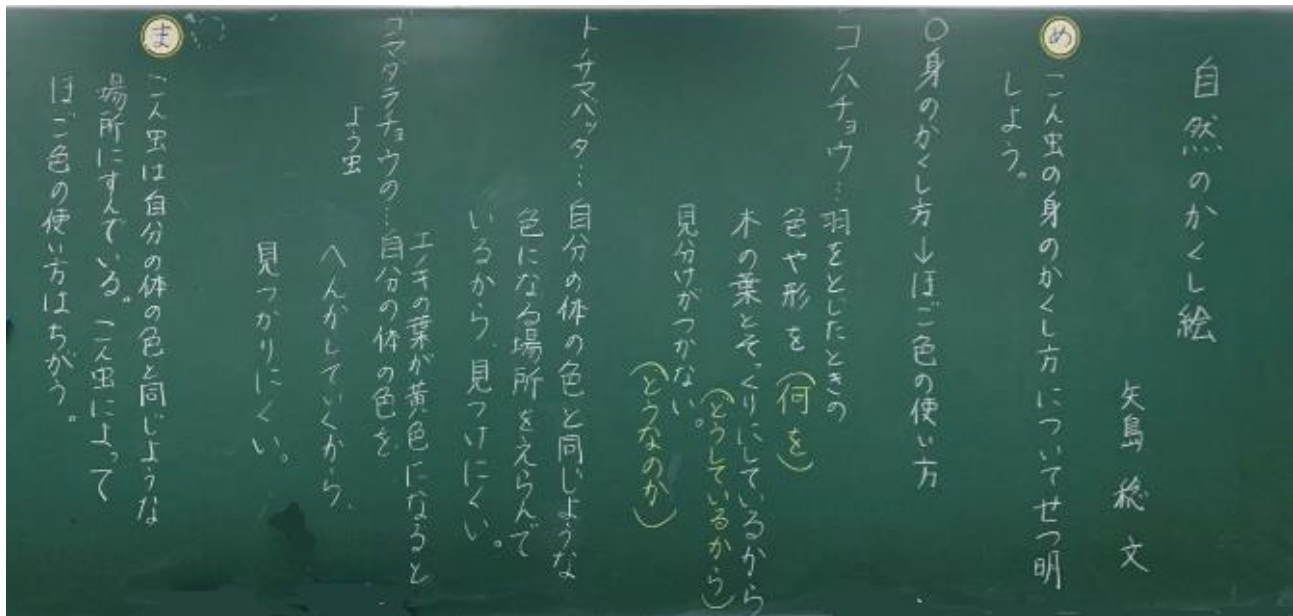 自然のかくし絵
矢島稔文
め
こん虫の身のかくし方についてせつ明
しよう。
○身のかくし方→ほご色の使い方
コノハチョウ…羽をとじたときの
色や形を(何を)
木の葉とそっくりにしているから
(どうしているから)
見分けがつかない。
(どうなのか)
トノサマバッタ…自分の体の色と同じような
色になる場所をえらんで
いるから、見つけにくい。
エノキの葉が黄色になると
ゴマダラチョウの…自分の体の色を
よう虫
へんかしていくから、
見つかりにくい。
ま
こん虫は自分の体の色と同じような
場所にすんでいる。こん虫によって
ほご色の使い方はちがう。